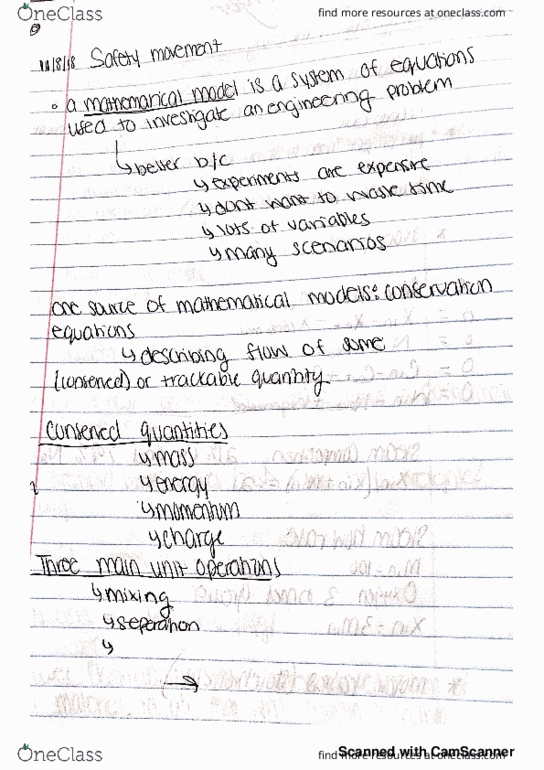 OneClass
find more resources at oneclass.com
11/8/18 Safety movement
a mathematical model is a system of equations
used to investigate an engineering problem
↳ better b/c
↳ experiments are expensive
↳ dont want to waste time
↳ lots of variables
↳ many scenarios
one source of mathematical models: conservation
equations
↳ describing flow of some
(conserved) or trackable quantity
Conserved quantities
↳ mass
↳ energy
↳ momentum
↳ charge
Three main unit operations
↳ mixing
↳ seperation
↳
→
OneClass
find more resources at oneclass.com
Scanned with CamScanner